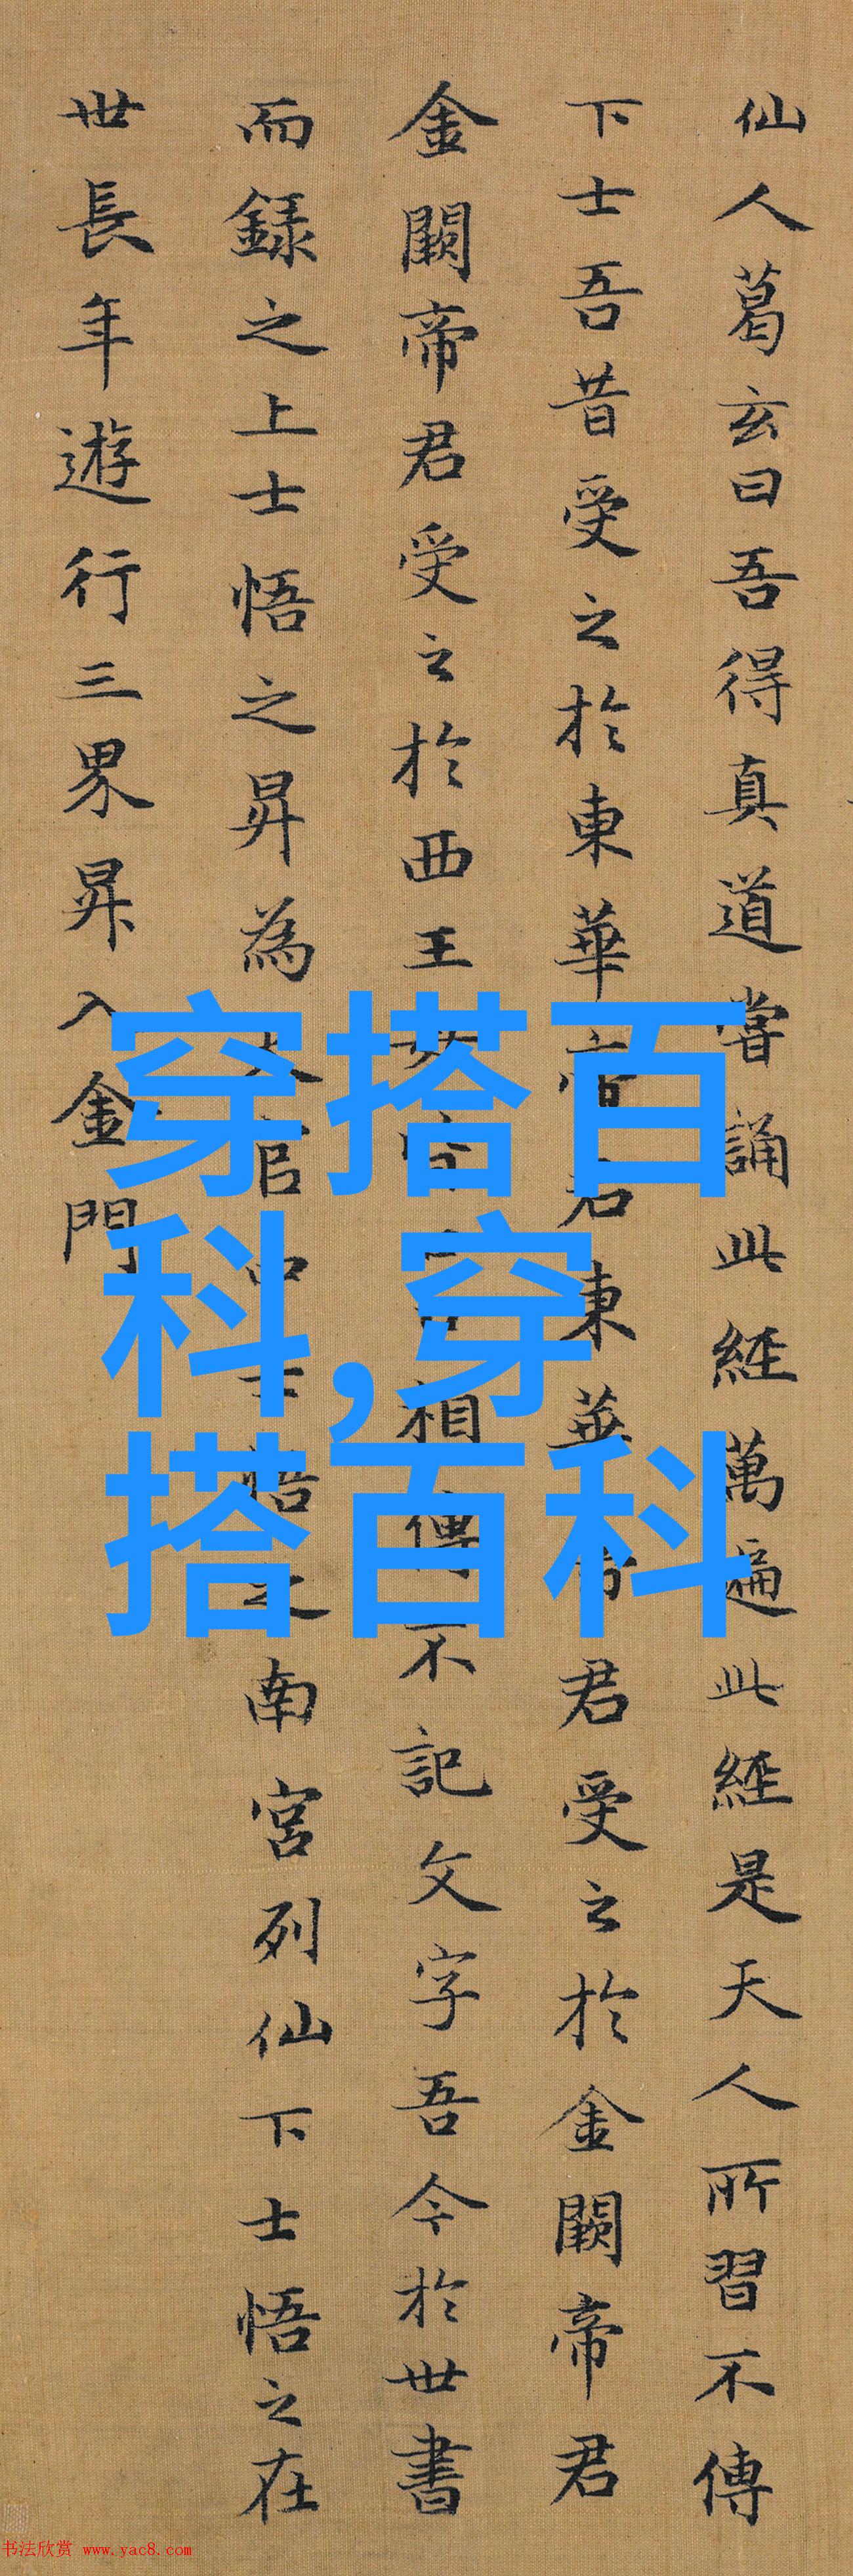 仙人葛玄曰吾得真道嘗誦此経萬遍此経是天人所習不傳
下士吾昔受之於東華帝君東華帝君受之於金闕帝君
金闕帝君受之於西王母皆口口相傳不記文字吾今於世書
而録之上士悟之昇為天官中士悟之南宮列仙下士悟之在
世長年遊行三界昇入金門
穿搭百
科,穿
搭百科
书法欣赏 www.yac8.com